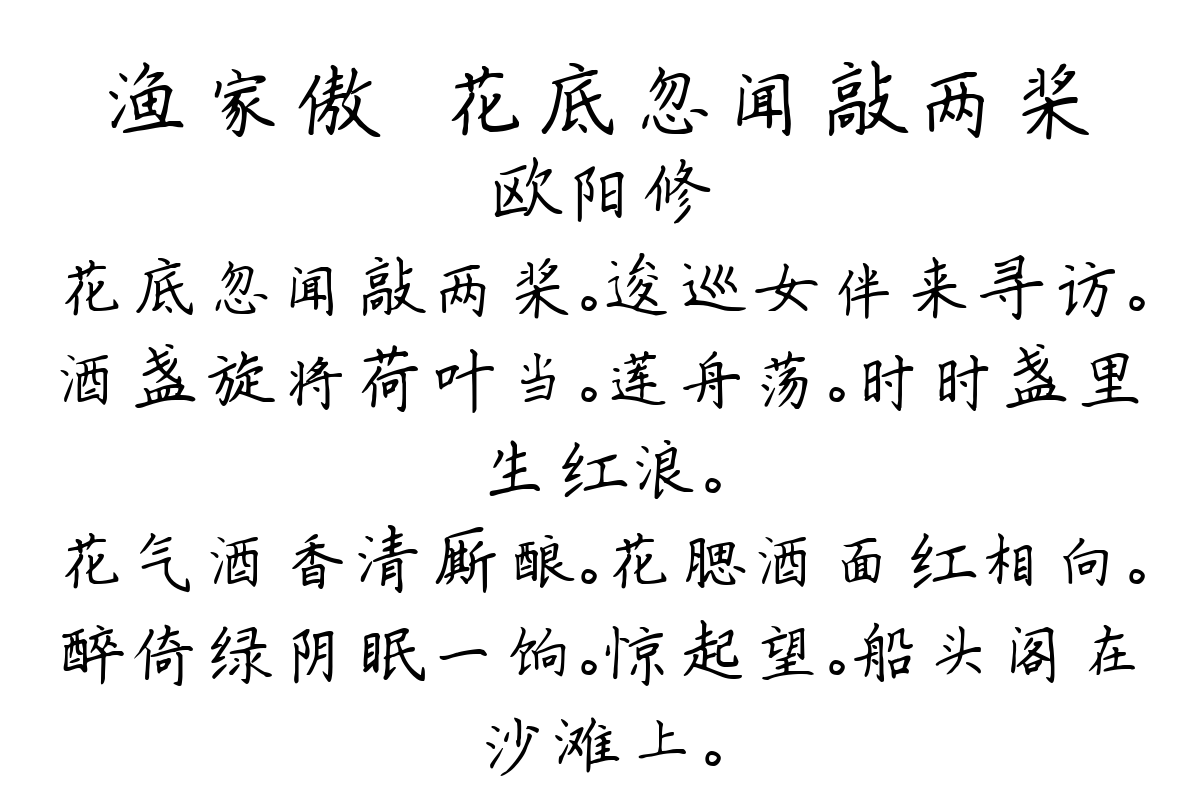 渔家傲 花底忽闻敲两桨
欧阳修
花底忽闻敲两桨。逡巡女伴来寻访。
酒盏旋将荷叶当。莲舟荡。时时盏里
生红浪。
花气酒香清厮酿。花腮酒面红相向。
醉倚绿阴眠一饷。惊起望。船头阁在
沙滩上。